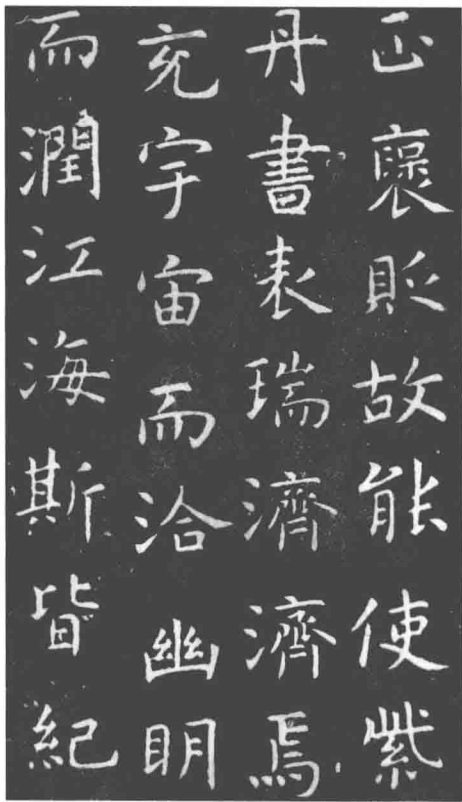 正褒貶故能使紫
丹書表瑞濟濟焉
充宇宙而洽幽明
而潤江海斯皆紀